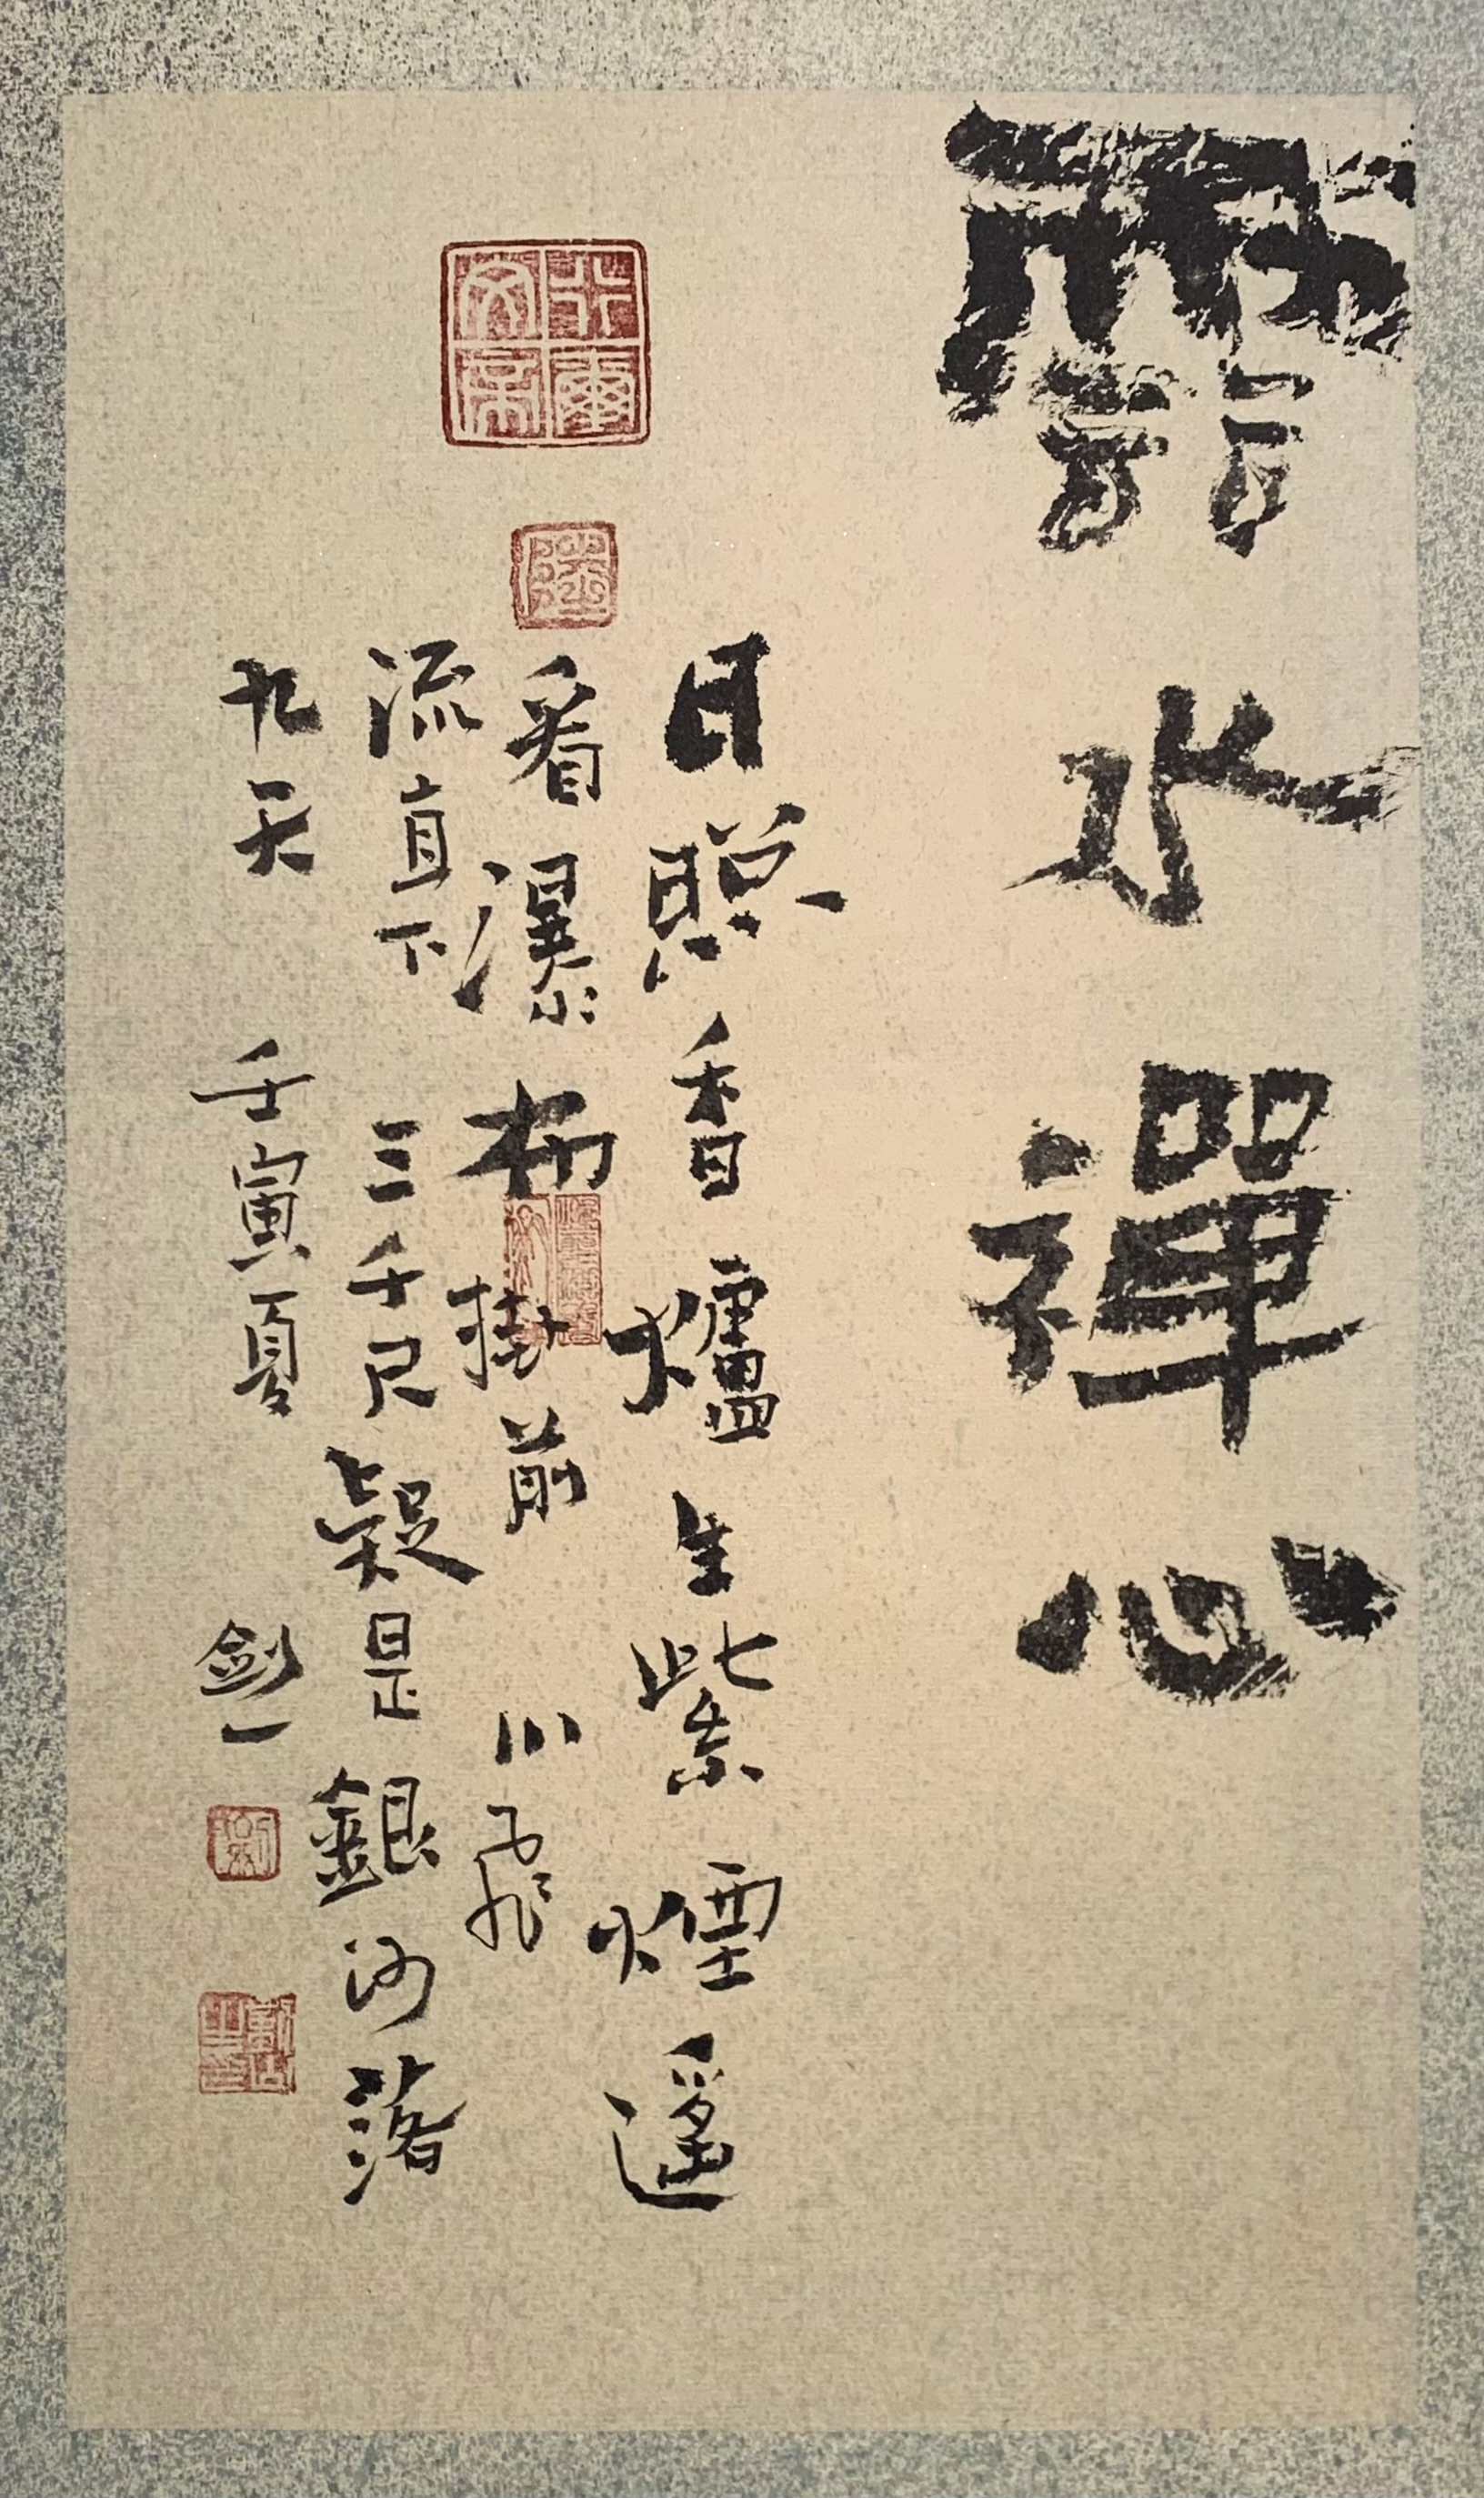 水禪心
日照香爐生紫煙遙
看瀑布掛前川飛
流直下三千尺疑是銀河落
九天 壬寅夏 劍一